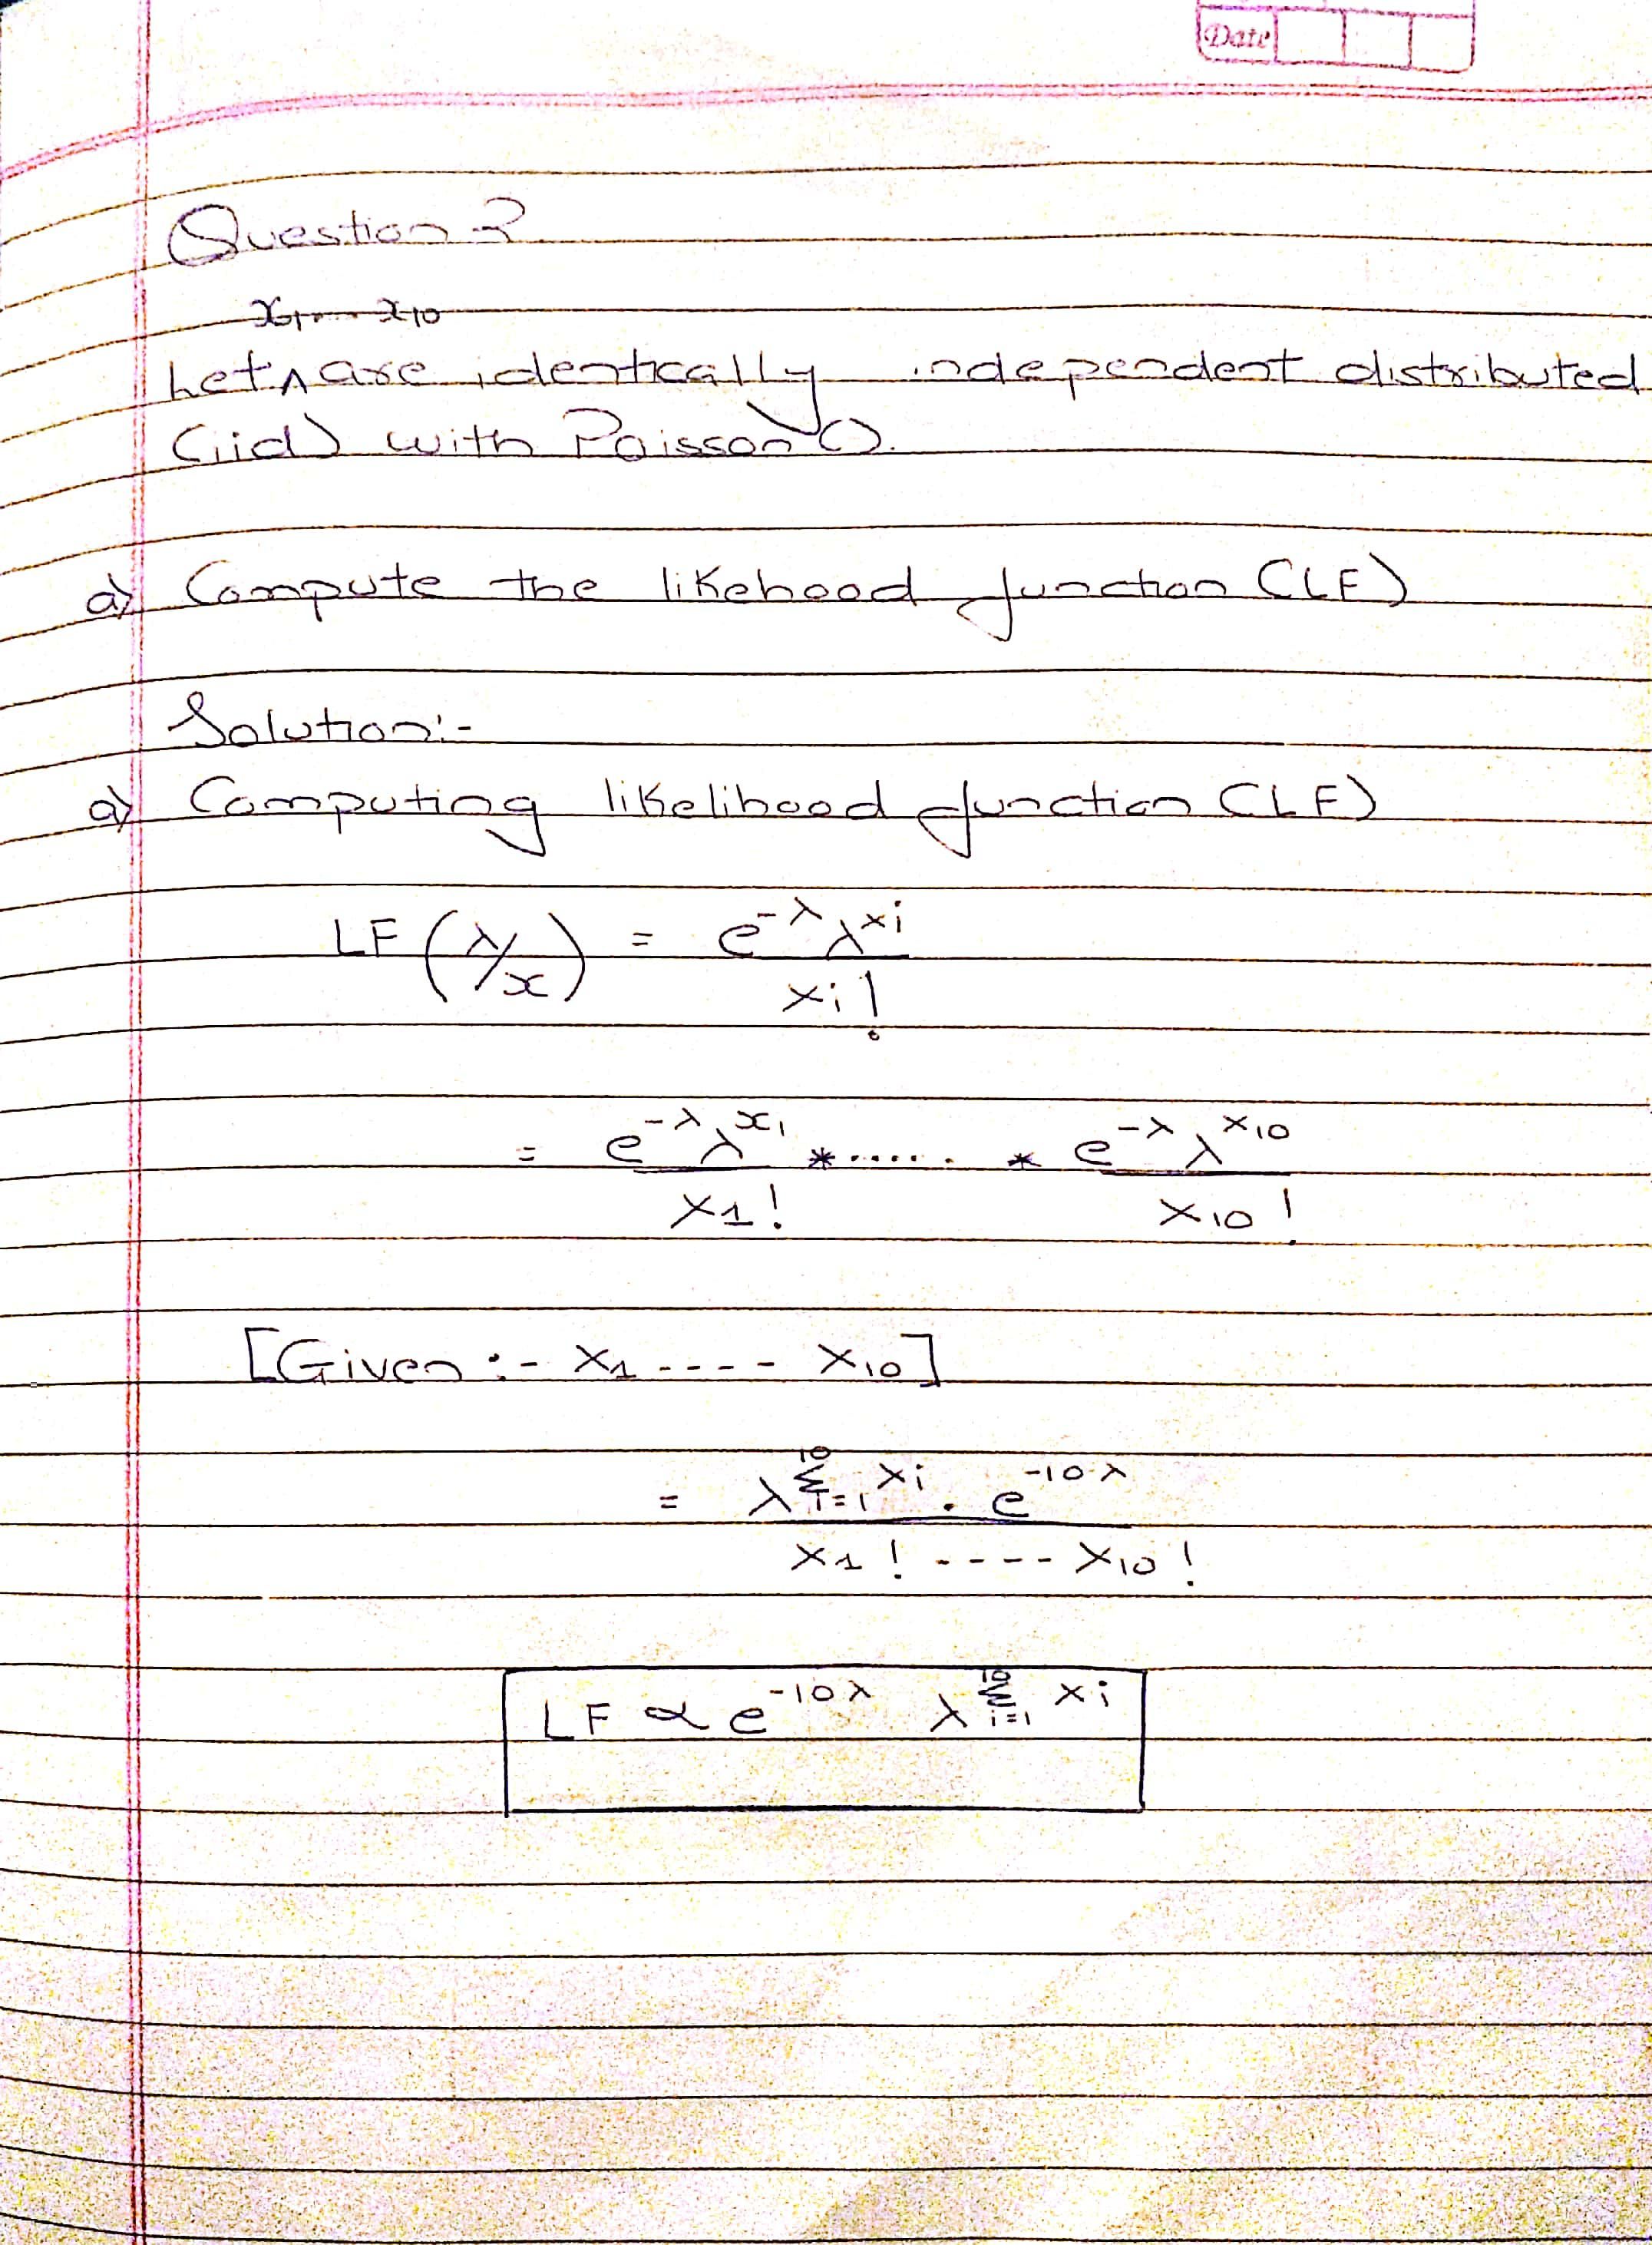 Date
Question 3
x1,.... x10
Let ^ are identically independent distributed
(iid) with Poisson ().
a) Compute the likehood function (LF)
Solution:-
a) Computing likelihood function (LF)
LF (λ/x) = e^-λ λ^xi / xi!
= e^-λ λ^x1 / x1! * ...... * e^-λ λ^x10 / x10!
[Given :- x1 ---- x10]
= λ^Σ_{i=1}^{10} xi . e^-10λ / x1! ---- x10!
LF ∝ e^-10λ λ^Σ_{i=1}^{10} xi